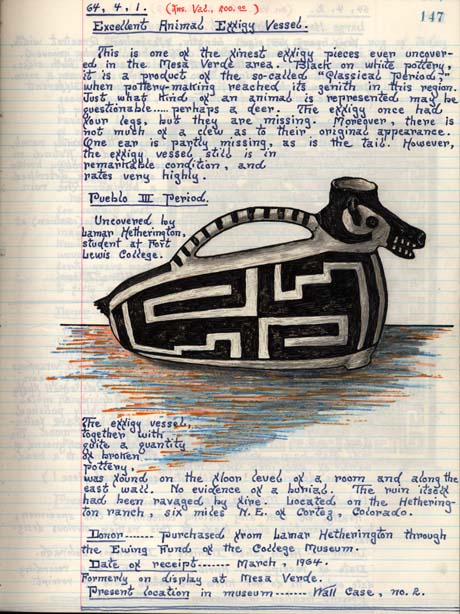 64, 4, 1. (Ins. Val., 200.00)
147
Excellent Animal Effigy Vessel.
This is one of the finest effigy pieces ever uncover-
ed in the Mesa Verde area. Black on white pottery,
it is a product of the so-called "Classical Period,"
when pottery-making reached its zenith in this region.
Just what kind of an animal is represented may be
questionable... perhaps a deer. The effigy once had
four legs, but they are missing. Moreover, there is
not much of a clew as to their original appearance.
One ear is partly missing, as is the tail. However,
the effigy vessel still is in
remarkable condition, and
rates very highly.
Pueblo III Period.
Uncovered by
Lamar Hetherington,
student at Fort
Lewis College.
The effigy vessel,
together with
quite a quantity
of broken
pottery,
was found on the floor level of a room and along the
east wall. No evidence of a burial. The ruin itself
had been ravaged by fire. Located on the Hethering-
ton ranch, six miles N.E. of Cortez, Colorado.
Donor------ Purchased from Lamar Hetherington through
the Ewing Fund of the College Museum.
Date of receipt------- March, 1964.
Formerly on display at Mesa Verde.
Present location in museum------- Wall Case, no. 2.